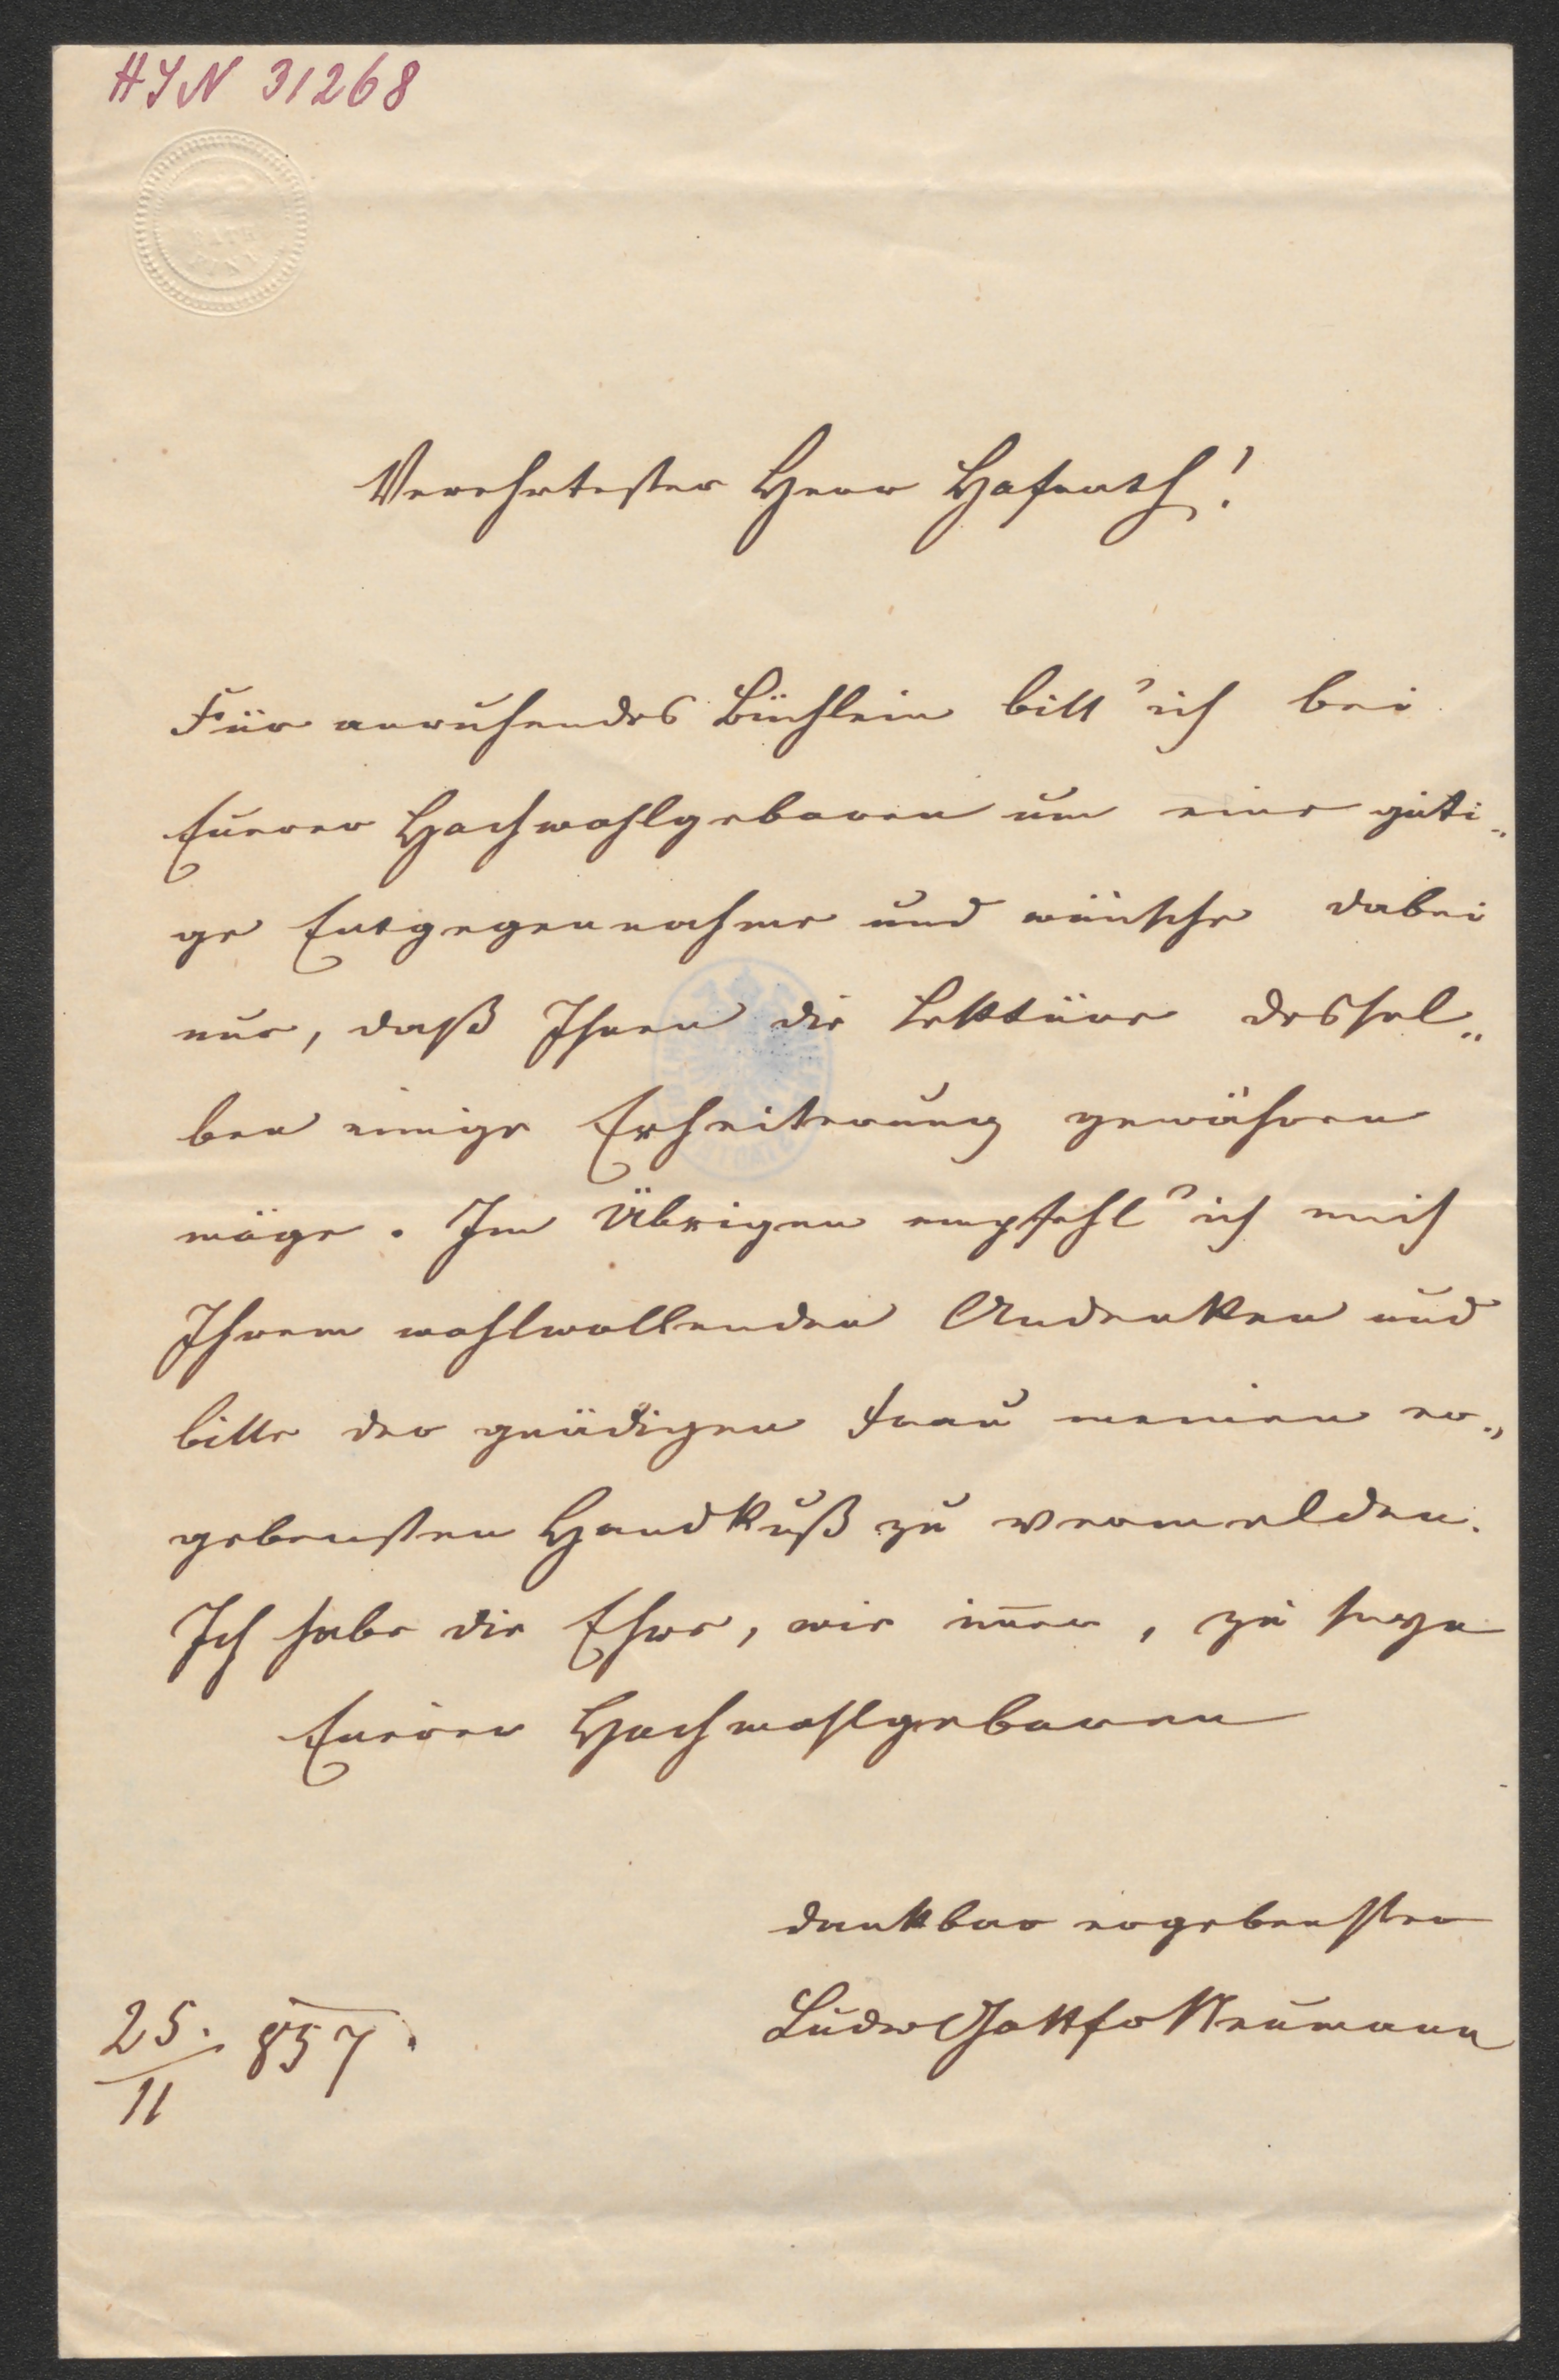 HIN 31268
BATH
Verehrtester Herr Hofrath!
Für anruhendes Büchlein bitt' ich bei
Euerer Hochwohlgeboren um eine güti„
ge Entgegennahme und wünsche dabei
nur, daß Ihnen die Lektüre dessel„
ben einige Erheiterung gewähren
möge. Im Übrigen empfehl' ich mich
Ihrem wohlwollenden Andenken und
bitte der gnädigen Frau meinen er„
gebensten Handkuß zu vermelden.
Ich habe die Ehre, wie im̅er, zu seyn
Euerer Hochwohlgeboren
dankbar ergebenster
Ludw Gottfr Neumann
25./11 857.